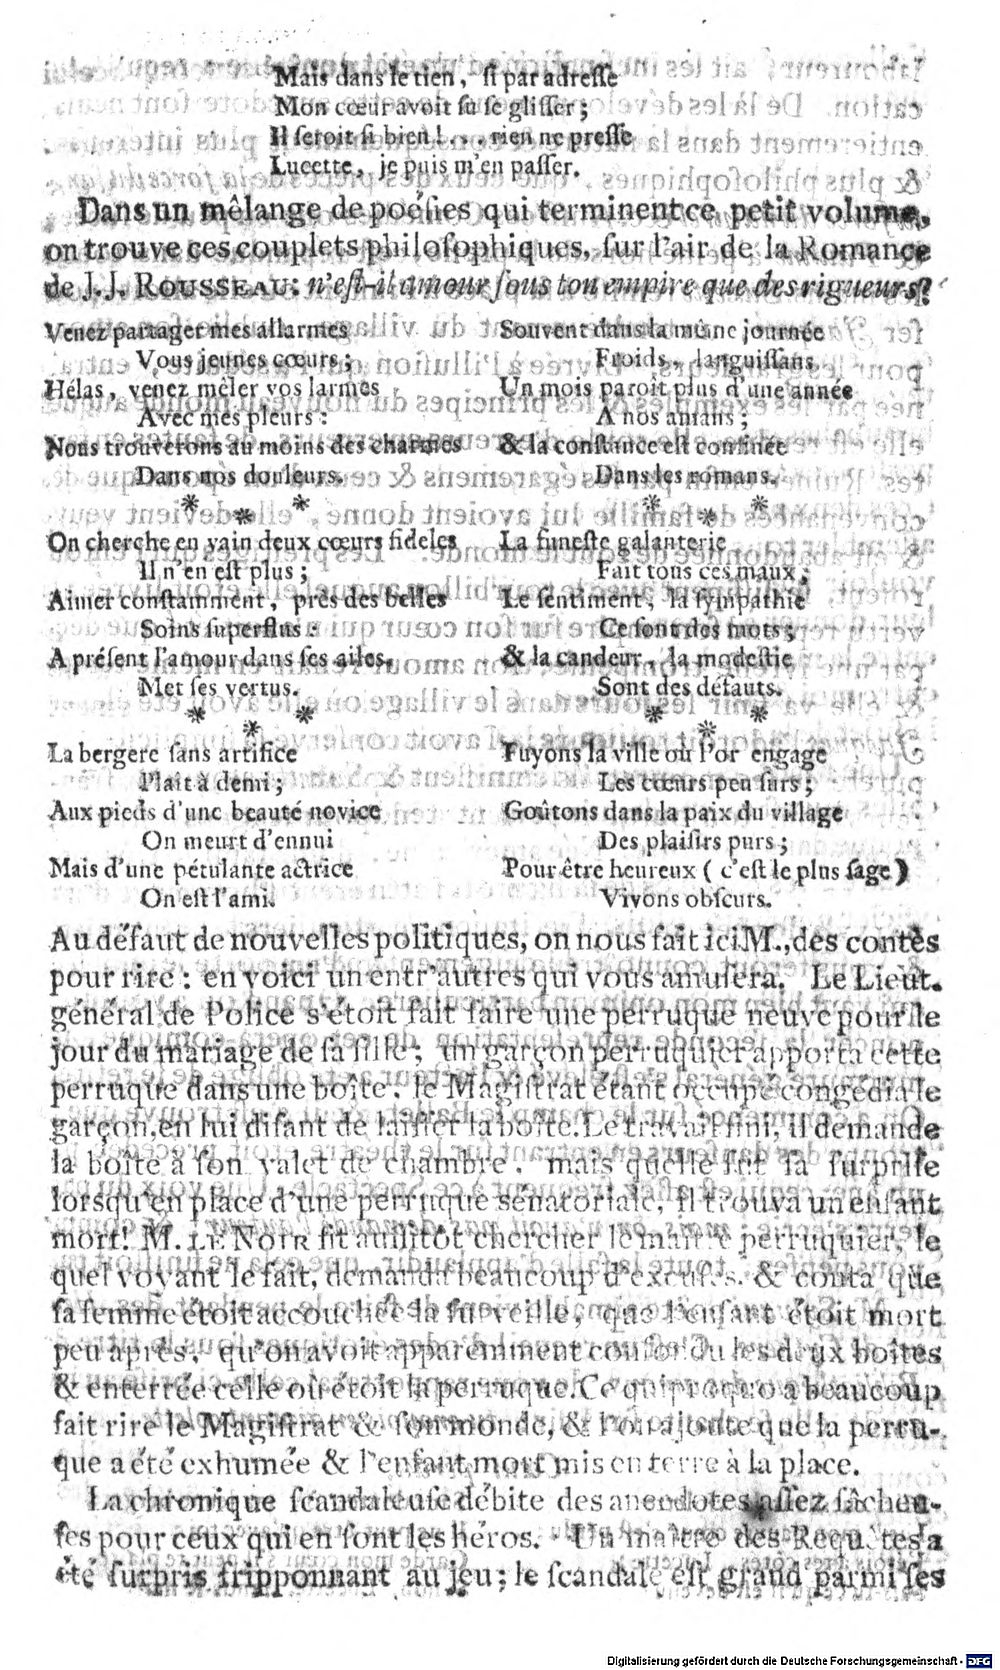 Mais dans le tien, ſi par adreſſe
Mon cœur avoit ſu ſe gliſſer;
Il ſeroit ſi bien!... rien ne preſſe
Lucette, je puis m'en paſſer.
Dans un mêlange de poéſies qui terminent ce petit volume,
on trouve ces couplets philoſophiques, ſur l'air de la Romance
de J.J. ROUSSEAU: n'eſt-il amour ſous ton empire que des rigueurs?
Venez partager mes allarmes
Vous jeunes cœurs;
Hélas, venez mêler vos larmes
Avec mes pleurs:
Nous trouverons au moins des charmes
Dans nos douleurs.
* * *
On cherche en vain deux cœurs fideles
Il n'en eſt plus;
Aimer conſtamment, près des belles
Soins ſuperflus:
A préſent l'amour dans ſes ailes,
Met ſes vertus.
* * *
La bergere ſans artifice
Plait à demi;
Aux pieds d'une beauté novice
On meurt d'ennui
Mais d'une pétulante actrice
On eſt l'ami.
Souvent dans la même journée
Froids, languiſſans
Un mois paroît plus d'une année
A nos amans;
& la conſtance eſt confinée
Dans les romans.
* * *
La funeſte galanterie
Fait tous ces maux;
Le ſentiment, la ſympathie
Ce ſont des mots;
& la candeur, la modeſtie
Sont des défauts.
* * *
Fuyons la ville où l'or engage
Les cœurs peu ſurs;
Goûtons dans la paix du village
Des plaiſirs purs;
Pour être heureux (c'eſt le plus ſage)
Vivons obſcurs.
Au défaut de nouvelles politiques, on nous fait ici M., des contes
pour rire: en voici un entr'autres qui vous amuſera. Le Lieut.
général de Police s'étoit fait faire une perruque neuve pour le
jour du mariage de ſa fille; un garçon perruquier apporta cette
perruque dans une boîte, le Magiſtrat étant occupé congédia le
garçon, en lui diſant de laiſſer la boîte. Le travail fini, il demande
la boîte à ſon valet de chambre, mais quelle fut ſa ſurpriſe
lorſqu'en place d'une perruque sénatoriale, il trouva un enfant
mort! M. LE NOIR fit auſſitôt chercher le maître perruquier, le
quel voyant le fait, demanda beaucoup d'excuſes. & conta que
ſa femme étoit accouchée la ſurveille, que l'enfant étoit mort
peu après, qu'on avoit apparemment confondu les deux boîtes
& enterrée celle où étoit la perruque. Ce quiproquo a beaucoup
fait rire le Magiſtrat & ſon monde, & l'on ajoute que la perru-
que a été exhumée & l'enfant mort mis en terre à la place.
La chronique ſcandaleuſe débite des anecdotes aſſez fâcheu-
ſes pour ceux qui en ſont les héros. Un maître des Requêtes a
été ſurpris fripponnant au jeu; le ſcandale eſt grand parmi ſes
Digitalisierung gefördert durch die Deutsche Forschungsgemeinschaft - DFG